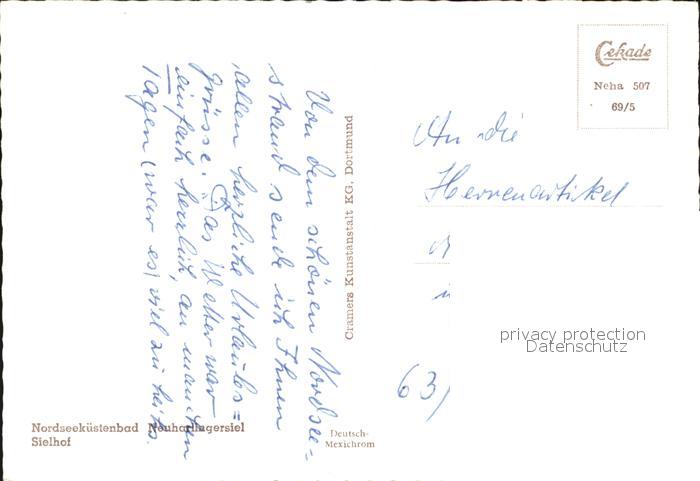 Von dem schönen Nordsee-
strand sende ich Ihnen
allen herzliche Urlaubs=
grüsse. Das Wetter war
einfach herrlich, an manchen
Tagen (war es) viel zu heiß.
Cramers Kunstanstalt KG, Dortmund
Cekade
Neha 507
69/5
An die
Herrenartikel
63,
privacy protection
Datenschutz
Nordseeküstenbad Neuharlingersiel
Sielhof
Deutsch-
Mexichrom